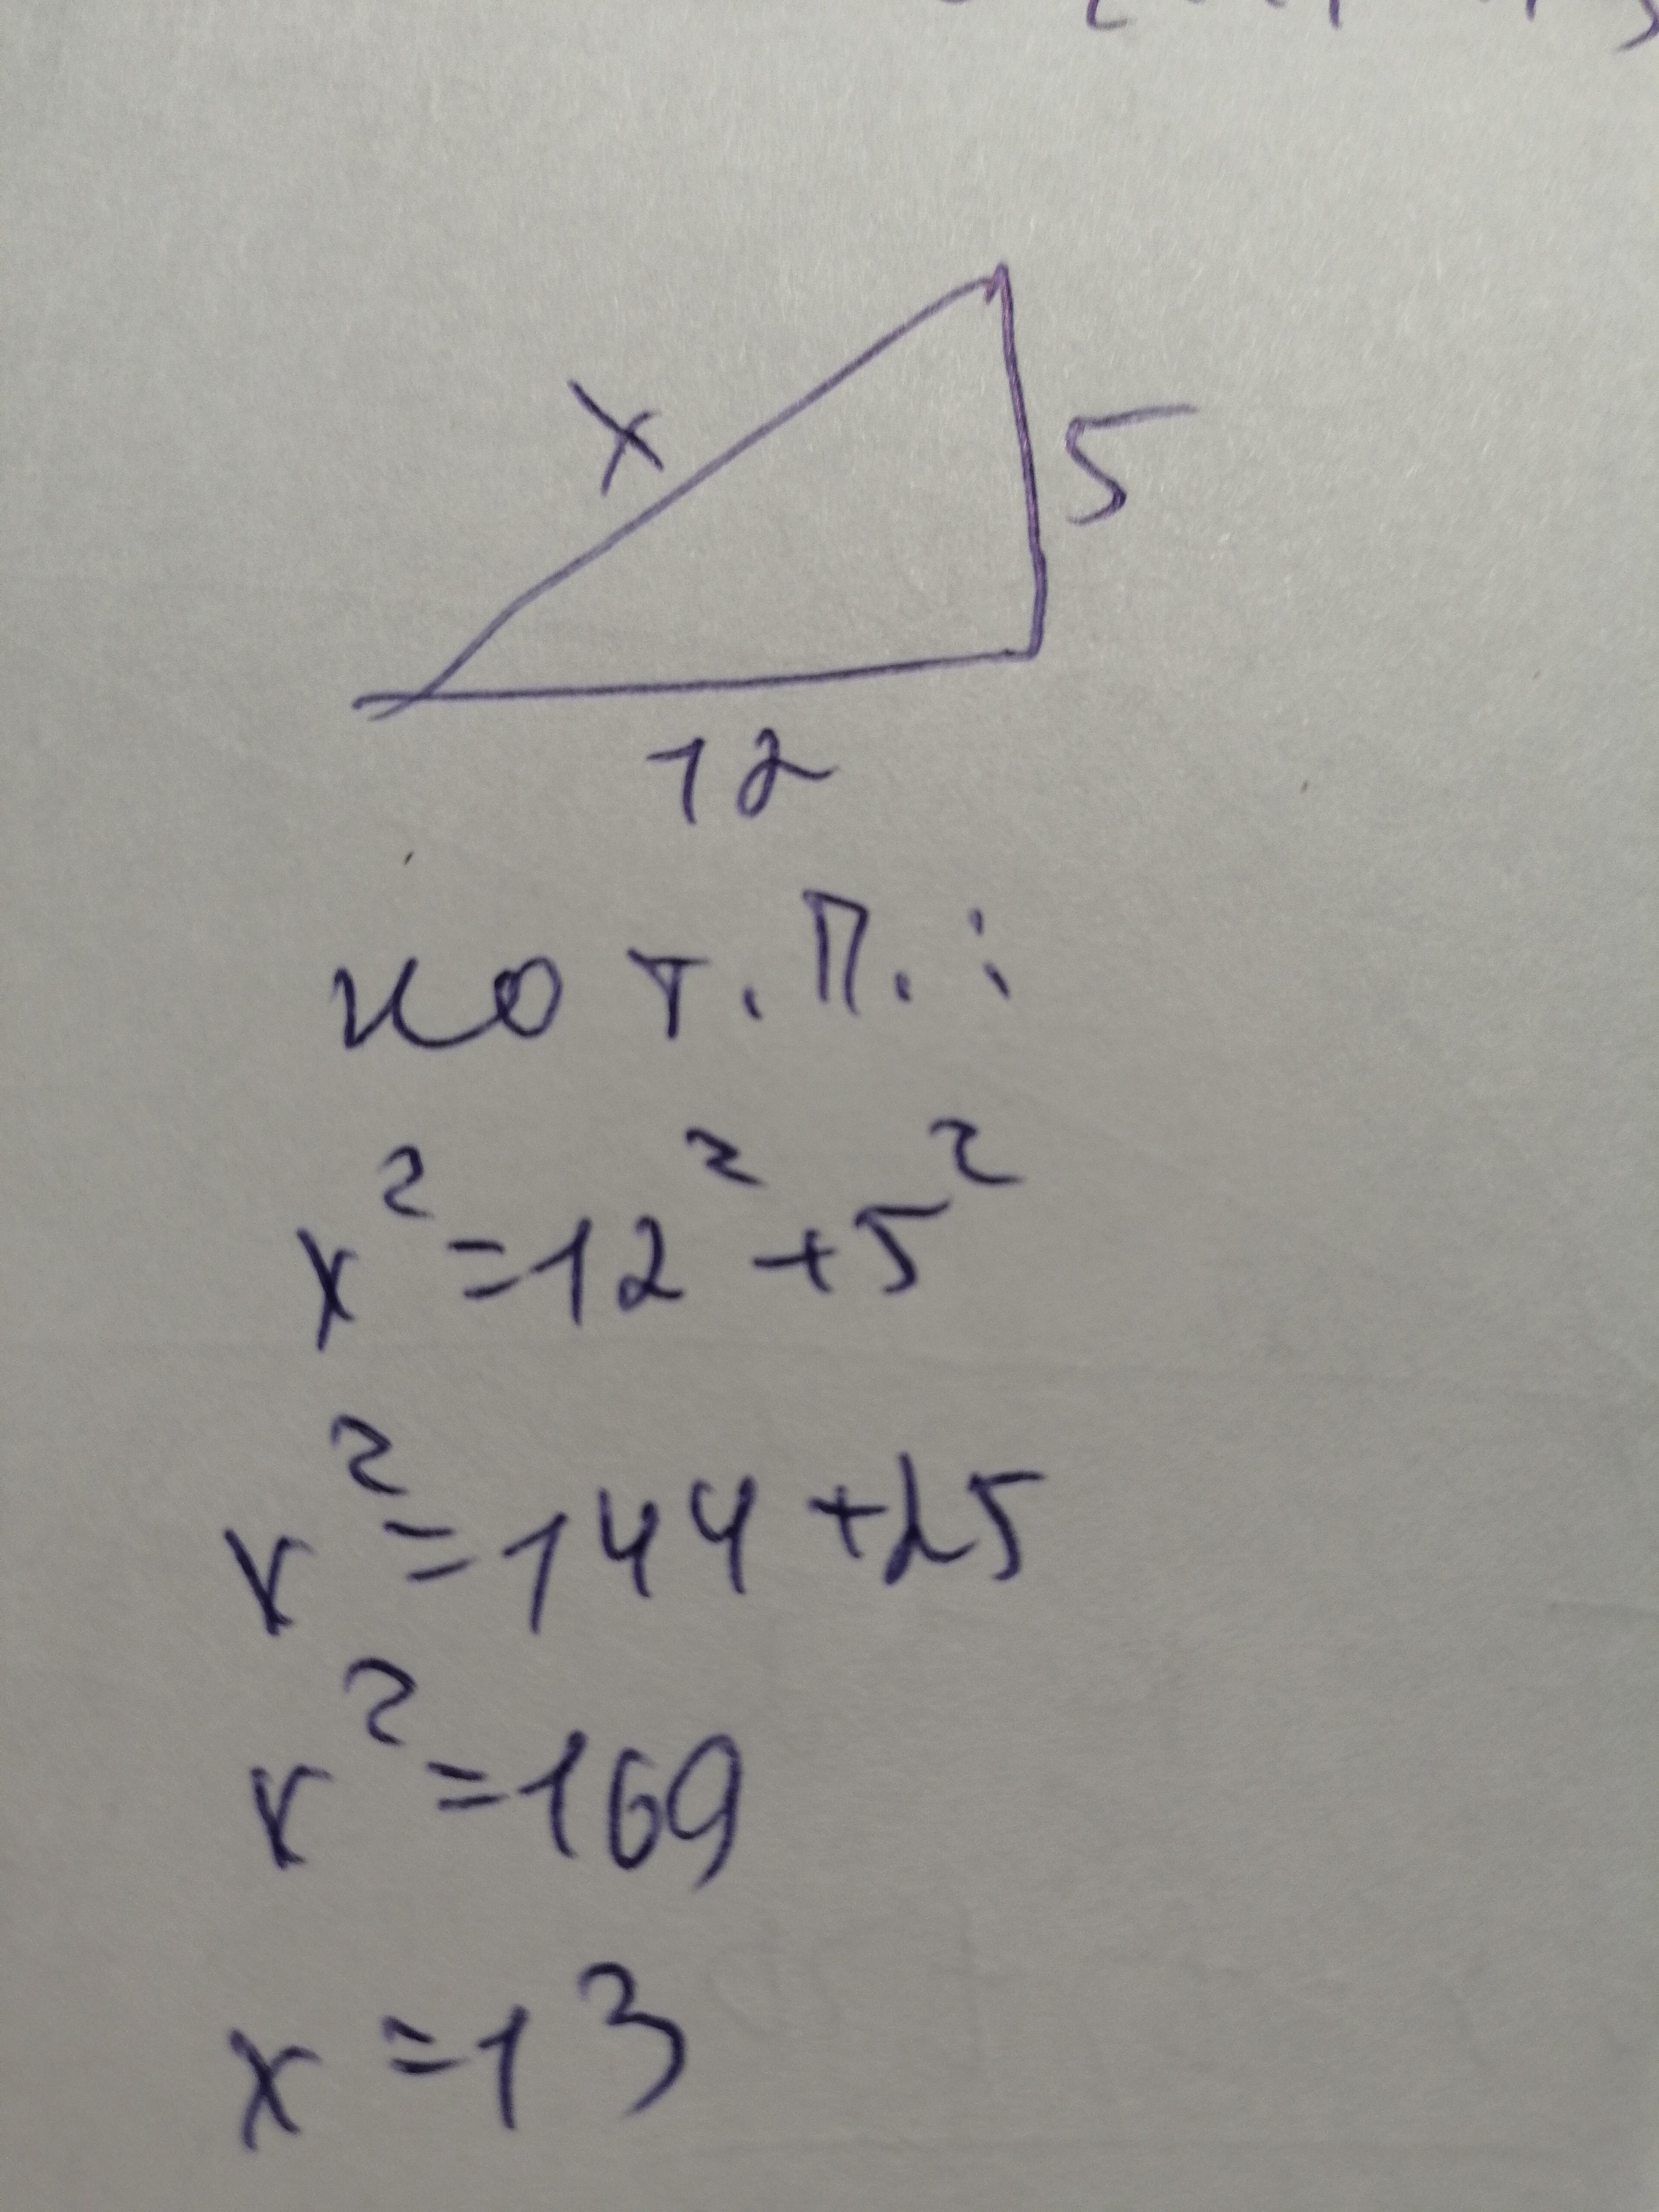 x
5
12
по т. П. :
x² = 12² + 5²
x² = 144 + 25
x² = 169
x = 13